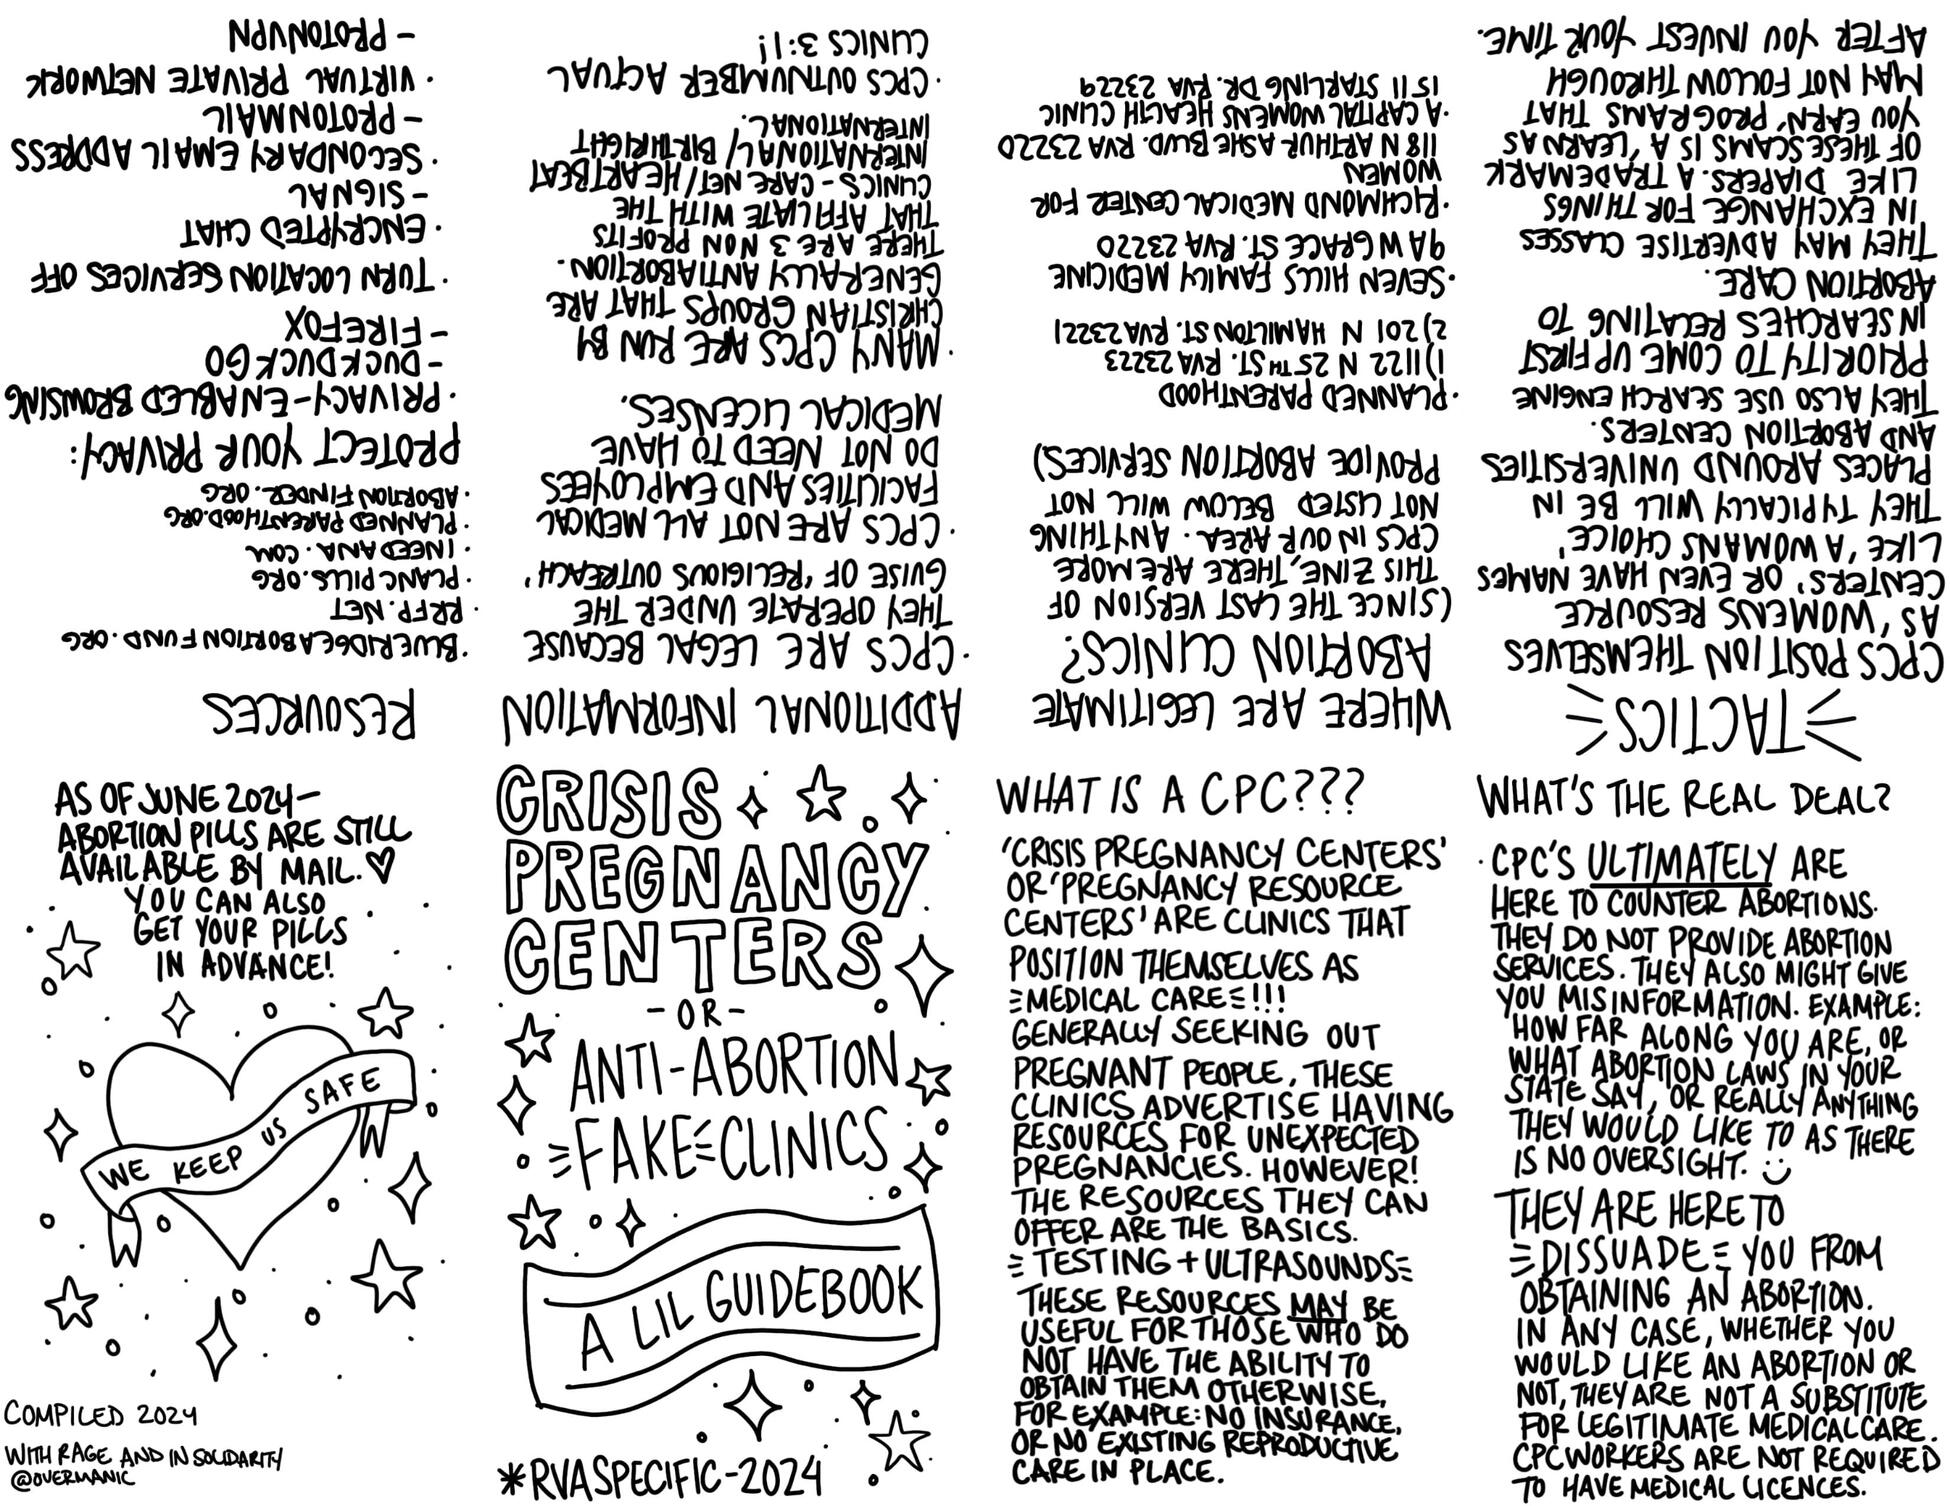 CRISIS
PREGNANCY
CENTERS
-OR-
ANTI-ABORTION
FAKE CLINICS
A LIL GUIDEBOOK
*RVA SPECIFIC-2024
WHAT IS A CPC???
'CRISIS PREGNANCY CENTERS'
OR 'PREGNANCY RESOURCE
CENTERS' ARE CLINICS THAT
POSITION THEMSELVES AS
MEDICAL CARE!!!
GENERALLY SEEKING OUT
PREGNANT PEOPLE, THESE
CLINICS ADVERTISE HAVING
RESOURCES FOR UNEXPECTED
PREGNANCIES. HOWEVER!
THE RESOURCES THEY CAN
OFFER ARE THE BASICS.
TESTING + ULTRASOUNDS
THESE RESOURCES MAY BE
USEFUL FOR THOSE WHO DO
NOT HAVE THE ABILITY TO
OBTAIN THEM OTHERWISE,
FOR EXAMPLE: NO INSURANCE,
OR NO EXISTING REPRODUCTIVE
CARE IN PLACE.
WHAT'S THE REAL DEAL?
· CPC'S ULTIMATELY ARE
HERE TO COUNTER ABORTIONS.
THEY DO NOT PROVIDE ABORTION
SERVICES. THEY ALSO MIGHT GIVE
YOU MISINFORMATION. EXAMPLE:
HOW FAR ALONG YOU ARE, OR
WHAT ABORTION LAWS IN YOUR
STATE SAY, OR REALLY ANYTHING
THEY WOULD LIKE TO AS THERE
IS NO OVERSIGHT. :)
THEY ARE HERE TO
DISSUADE YOU FROM
OBTAINING AN ABORTION.
IN ANY CASE, WHETHER YOU
WOULD LIKE AN ABORTION OR
NOT, THEY ARE NOT A SUBSTITUTE
FOR LEGITIMATE MEDICAL CARE.
CPC WORKERS ARE NOT REQUIRED
TO HAVE MEDICAL LICENCES.
TACTICS
CPCS POSITION THEMSELVES
AS, 'WOMENS RESOURCE
CENTERS', OR EVEN HAVE NAMES
LIKE 'A WOMANS CHOICE'
THEY TYPICALLY WILL BE IN
PLACES AROUND UNIVERSITIES
AND ABORTION CENTERS.
THEY ALSO USE SEARCH ENGINE
PRIORITY TO COME UP FIRST
IN SEARCHES RELATING TO
ABORTION CARE.
THEY MAY ADVERTISE CLASSES
IN EXCHANGE FOR THINGS
LIKE DIAPERS. A TRADEMARK
OF THESE SCAMS IS A 'LEARN AS
YOU EARN', PROGRAMS THAT
MAY NOT FOLLOW THROUGH
AFTER YOU INVEST YOUR TIME.
WHERE ARE LEGITIMATE
ABORTION CLINICS?
(SINCE THE LAST VERSION OF
THIS ZINE, THERE ARE MORE
CPCS IN OUR AREA. ANYTHING
NOT LISTED BELOW WILL NOT
PROVIDE ABORTION SERVICES)
· PLANNED PARENTHOOD
1) 1122 N 25TH ST. RVA 23223
2) 201 N HAMILTON ST. RVA 23221
· SEVEN HILLS FAMILY MEDICINE
9A W GRACE ST. RVA 23220
· RICHMOND MEDICAL CENTER FOR
WOMEN
118 N ARTHUR ASHE BLVD. RVA 23220
· A CAPITAL WOMENS HEALTH CLINIC
1511 STARLING DR. RVA 23229
ADDITIONAL INFORMATION
· CPCS ARE LEGAL BECAUSE
THEY OPERATE UNDER THE
GUISE OF 'RELIGIOUS OUTREACH'
· CPCS ARE NOT ALL MEDICAL
FACILITIES AND EMPLOYEES
DO NOT NEED TO HAVE
MEDICAL LICENSES.
· MANY CPCS ARE RUN BY
CHRISTIAN GROUPS THAT ARE
GENERALLY ANTIABORTION.
THERE ARE 3 NON PROFITS
THAT AFFILIATE WITH THE
CLINICS - CARE NET/ HEARTBEAT
INTERNATIONAL/ BIRTHRIGHT
INTERNATIONAL.
· CPCS OUTNUMBER ACTUAL
CLINICS 3:1!
RESOURCES
· BLUERIDGEABORTIONFUND.ORG
· RRFP.NET
· PLANCPILLS.ORG
· INEEDANA.COM
· PLANNEDPARENTHOOD.ORG
· ABORTIONFINDER.ORG
PROTECT YOUR PRIVACY:
· PRIVACY-ENABLED BROWSING
- DUCKDUCKGO
- FIREFOX
· TURN LOCATION SERVICES OFF
· ENCRYPTED CHAT
- SIGNAL
· SECONDARY EMAIL ADDRESS
- PROTONMAIL
· VIRTUAL PRIVATE NETWORK
- PROTONVPN
AS OF JUNE 2024-
ABORTION PILLS ARE STILL
AVAILABLE BY MAIL. ♡
YOU CAN ALSO
GET YOUR PILLS
IN ADVANCE!
WE KEEP US SAFE
COMPILED 2024
WITH RAGE AND IN SOLIDARITY
@OVERMANIC